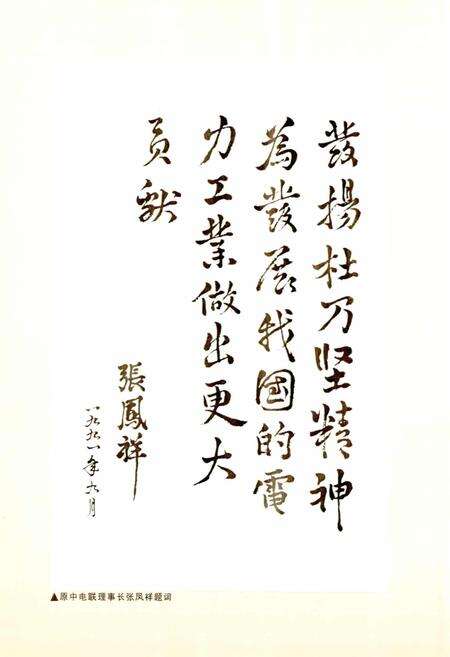 發揚杜乃坚精神
為發展我國的電
力工業做出更大
貢獻
張鳳祥
一九九一年九月
▲原中电联理事长张凤祥题词